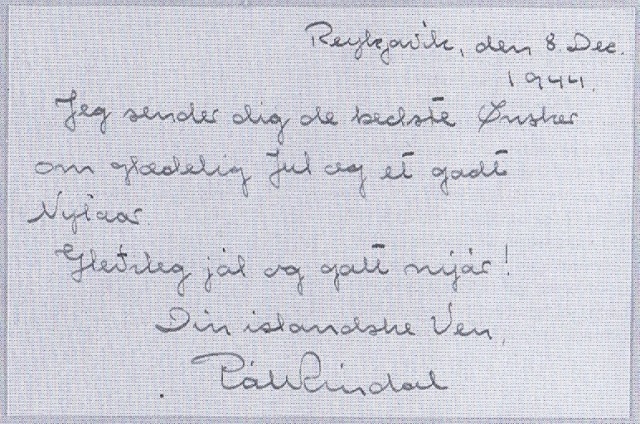 Reykjavik, den 8. Dec.
1944.
Jeg sender dig de bedste Ønsker
om glædelig Jul og et godt
Nytaar.
Gleðileg jól og gott nýjár!
Din islandske Ven,
Páll